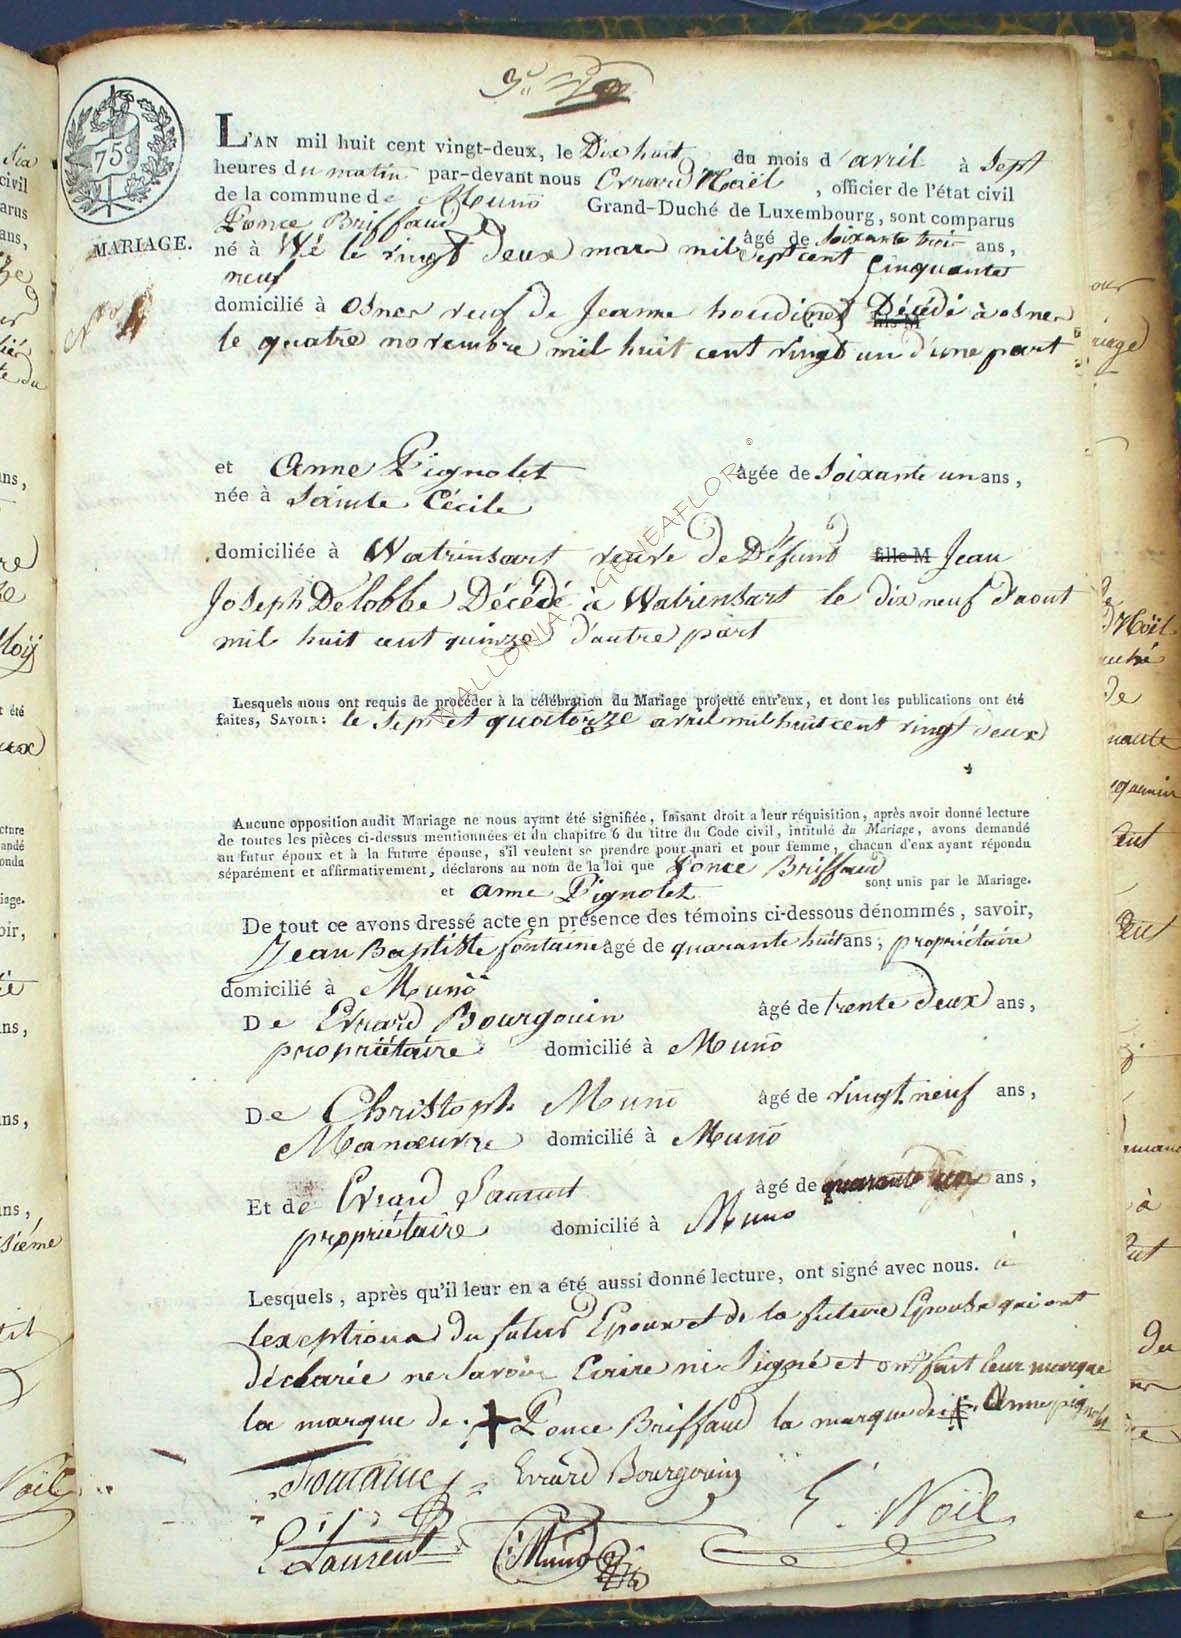 75c
MARIAGE.
L'AN mil huit cent vingt-deux, le Dix huit du mois d'avril à Sept
heures du matin par-devant nous Evrard Noël, officier de l'état civil
de la commune de Muno Grand-Duché de Luxembourg, sont comparus
Ponce Briffaud âgé de Soixante trois ans,
né à Wé le vingt deux mars mil sept cent Cinquante
neuf
domicilié à osnes veuf de Jeanne houdinet fils M Décédé à osnes
le quatre novembre mil huit cent vingt un d'une part
et Anne Pignolet âgée de Soixante un ans,
née à Sainte Cécile
domiciliée à Watrinsart veuve de Défund fille M Jean
Joseph Délobbe Décédé à Watrinsart le dix neuf d'aout
mil huit cent quinze d'autre part
Lesquels nous ont requis de procéder à la célébration du Mariage projetté entr'eux, et dont les publications ont été
faites, SAVOIR: le Sept et quatorze avril mil huit cent vingt deux
Aucune opposition audit Mariage ne nous ayant été signifiée, faisant droit a leur réquisition, après avoir donné lecture
de toutes les pièces ci-dessus mentionnées et du chapitre 6 du titre du Code civil, intitulé du Mariage, avons demandé
au futur époux et à la future épouse, s'il veulent se prendre pour mari et pour femme, chacun d'eux ayant répondu
séparément et affirmativement, déclarons au nom de la loi que Ponce Briffaud
et anne Pignolet sont unis par le Mariage.
De tout ce avons dressé acte en présence des témoins ci-dessous dénommés, savoir,
Jean Baptiste fontaine âgé de quarante huit ans, propriétaire
domicilié à Muno
De Evrard Bourgouin âgé de trente deux ans,
propriétaire domicilié à Muno
De Christophe Muno âgé de vingt neuf ans,
Manœuvre domicilié à Muno
Et de Evrard Laurent âgé de quarante un ans,
propriétaire domicilié à Muno
Lesquels, après qu'il leur en a été aussi donné lecture, ont signé avec nous. à
lexeptions du futur Epoux et de la future Epouse qui ont
déclarée ne Savoir Ecrire ni Signé et ont fait leur marque
la marque de + Ponce Briffaud la marque de + Anne pignolet
Fontaine Evrard Bourgouin
E. Noël
E Laurent C: Muno
WALLONIA - GENEAFLOR ©